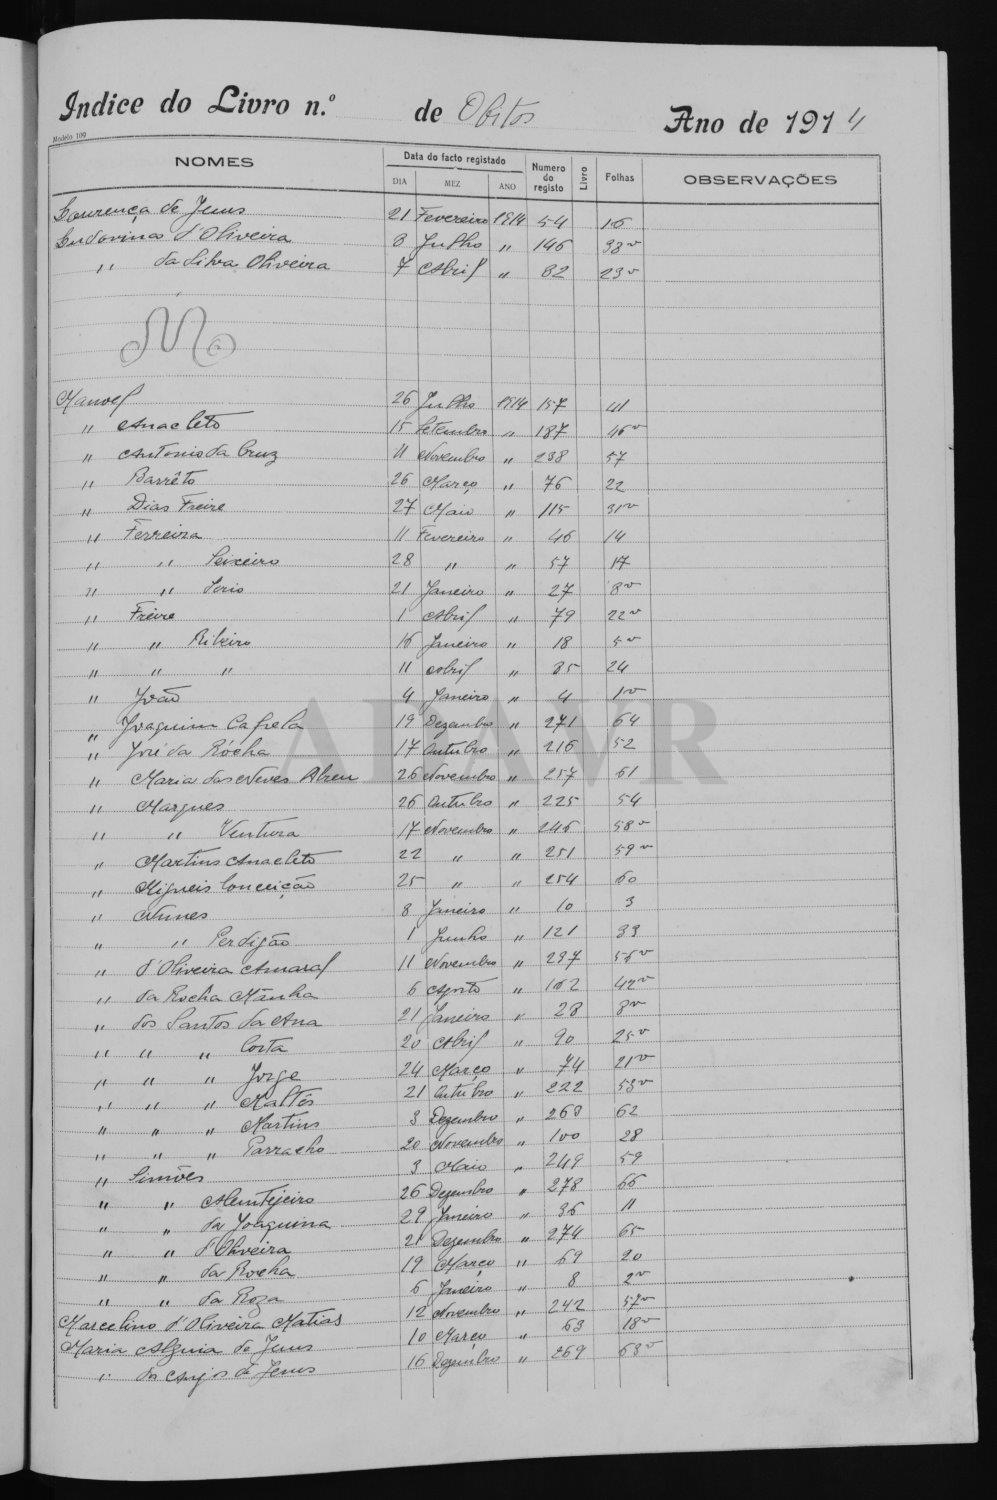 Indice do Livro n.º de Obitos Ano de 1914
Modelo 109
NOMES Data do facto registado Numero do registo Livro Folhas OBSERVAÇÕES
DIA MEZ ANO
Lourença de Jesus 21 Fevereiro 1914 54 16
Ludovina d'Oliveira 8 Julho " 146 38v
" da Silva Oliveira 7 Abril " 82 23v
M
Manoel 26 Julho 1914 157 41
" Anacleto 15 Setembro " 187 46v
" Antonio da Cruz 11 Novembro " 238 57
" Barrêto 26 Março " 76 22
" Dias Freire 27 Maio " 115 31v
" Ferreira 11 Fevereiro " 46 14
" " Seixeiro 28 " " 57 17
" " Serio 21 Janeiro " 27 8v
" Freire 1 Abril " 79 22v
" " Ribeiro 16 Janeiro " 18 5v
" " " 11 Abril " 85 24
" João 4 Janeiro " 4 1v
" Joaquim Cafrela 19 Dezembro " 271 64
" José da Rócha 17 Outubro " 216 52
" Maria das Neves Abreu 26 Novembro " 257 61
" Marques 26 Outubro " 225 54
" " Ventura 17 Novembro " 246 58v
" Martins Anacleto 22 " " 251 59v
" Migueis Conceição 25 " " 254 60
" Nunes 8 Janeiro " 10 3
" " Perdigão 1 Junho " 121 33
" d'Oliveira Amaral 11 Novembro " 237 56v
" da Rocha Mânha 6 Agosto " 162 42v
" dos Santos da Ana 21 Janeiro " 28 8v
" " " Costa 20 Abril " 90 25v
" " " Jorge 24 Março " 74 21v
" " " Maltês 21 Outubro " 222 53v
" " " Martins 3 Dezembro " 263 62
" " " Parracho 20 Novembro " 100 28
" Simões 3 Maio " 249 59
" " Alentejeiro 26 Dezembro " 278 66
" " da Joaquina 29 Janeiro " 36 11
" " d'Oliveira 21 Dezembro " 274 65
" " da Rocha 19 Março " 69 20
" " da Roza 6 Janeiro " 8 2v
Marcelino d'Oliveira Matias 12 Novembro " 242 57v
Maria de Jesus 10 Março " 63 18v
" dos Anjos de Jesus 16 Dezembro " 269 63v
ADAVR